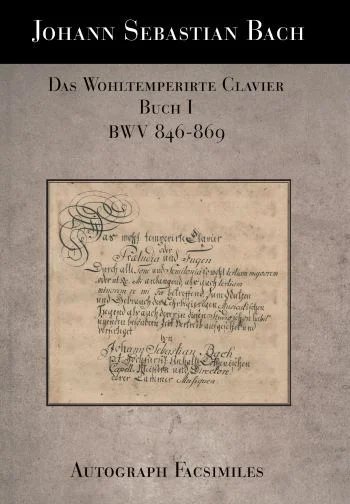 Johann Sebastian Bach
Das Wohltemperirte Clavier
Buch I
BWV 846-869
Das wohl temperirte Clavier
oder
Præludia und Fugen
durch alle Tone und Semitonia so wohl tertiam majorem
oder Ut Re Mi anlangend, als auch tertiam
minorem
Re Mi Fa betreffend. Zum Nutzen
und Gebrauch der Lehrbegierigen Musicalischen
Jugend als auch derer in diesem
und
von
Johann Sebastian Bach
Capell Meistern und Directore
derer Cammer Musiquen
Autograph Facsimiles